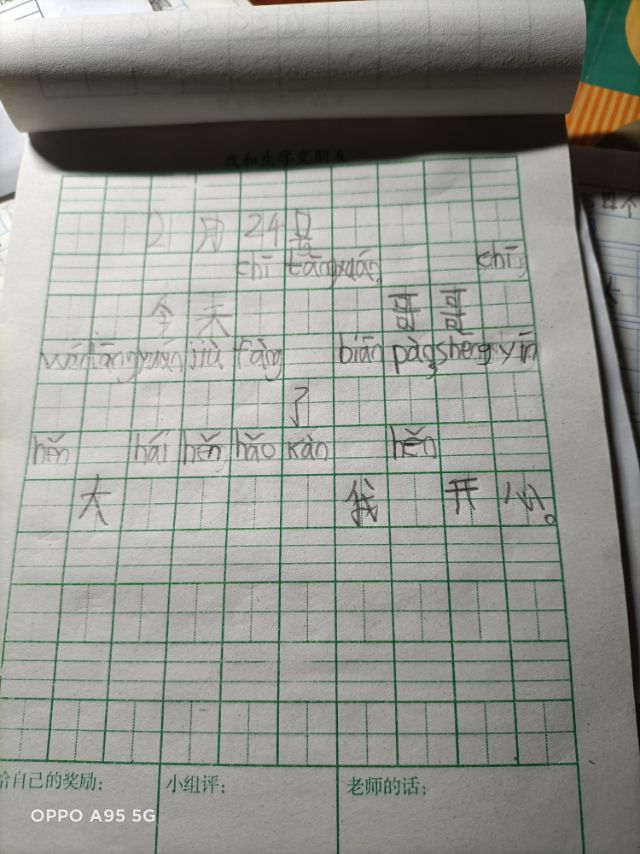 我和生字交朋友
2月24号
chī tāngyuán chī
今天 哥哥
wántāngyuán jiù fàng biān pàoshengyīn
了
hěn hái hěn hǎo kàn hěn
大 我 开心。
给自己的奖励：
小组评：
老师的话：
OPPO A95 5G